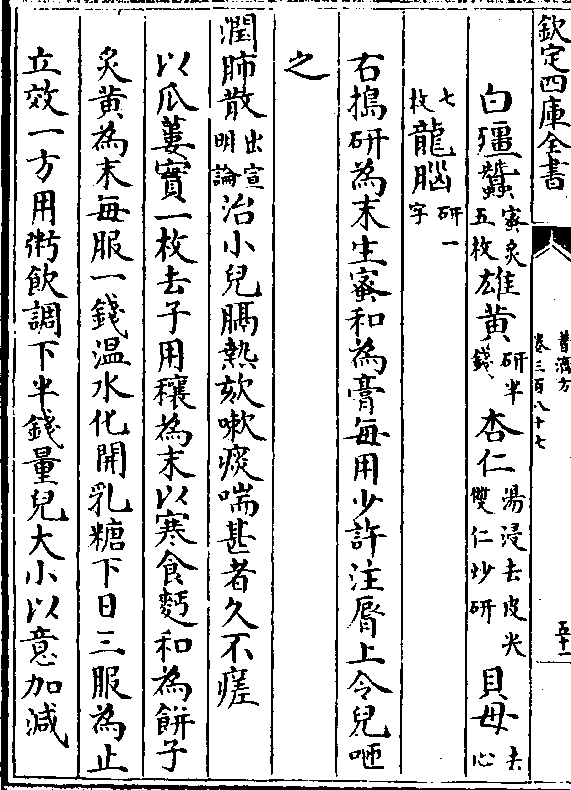 欽定四庫全書
普濟方
卷三百八十七
五十一
白殭蠶蜜炙五枚雄黃研半錢杏仁湯浸去皮尖雙仁炒研貝母去心
七枚龍腦研一字
右搗研為末生蜜和為膏每用少許注脣上令兒咂
之
潤肺散出宣明論治小兒膈熱欬嗽痰喘甚者久不瘥
以瓜蔞實一枚去子用穰為末以寒食麪和為餅子
炙黃為末每服一錢温水化開乳糖下日三服為止
立效一方用粥飲調下半錢量兒大小以意加減